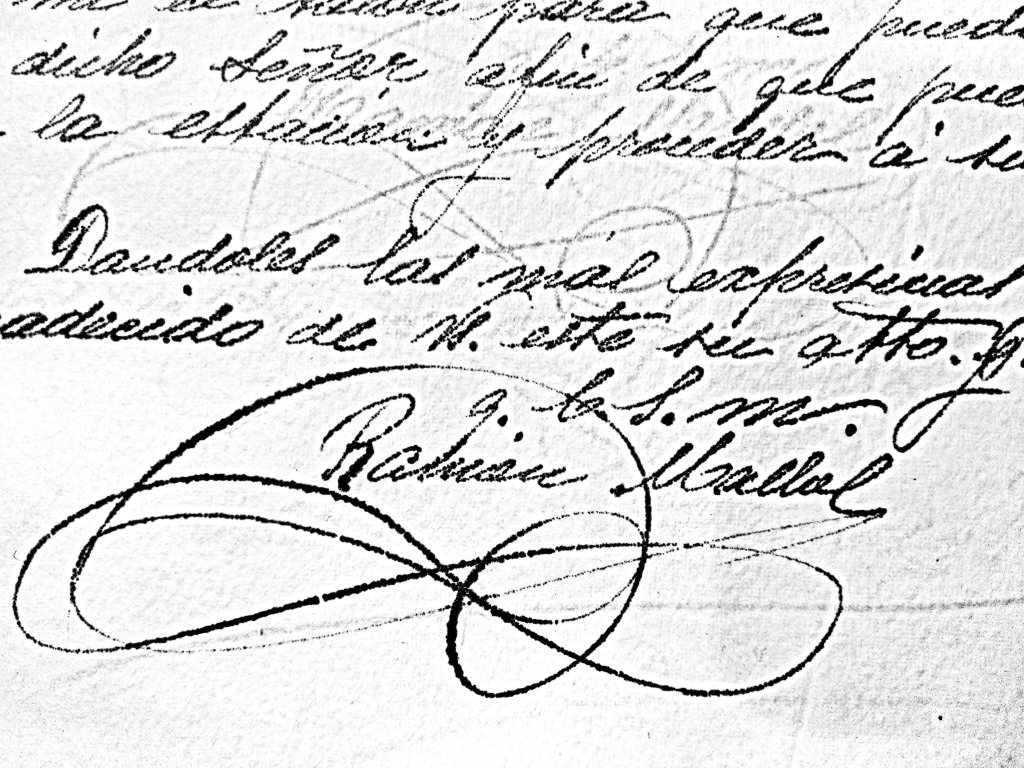 para que pueda
dicho Señor afin de que pue
la estacion y proceder á su
Dandoles las más expresivas
adecido de V. este su atto. q.
q. b. S. m.
Ramón Mallol